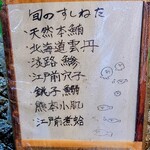 旬のすしねた
・天然本鮪
・北海道雲丹
・淡路鯵
・江戸前穴子
・銚子鰯
・熊本小肌
・江戸前煮蛤